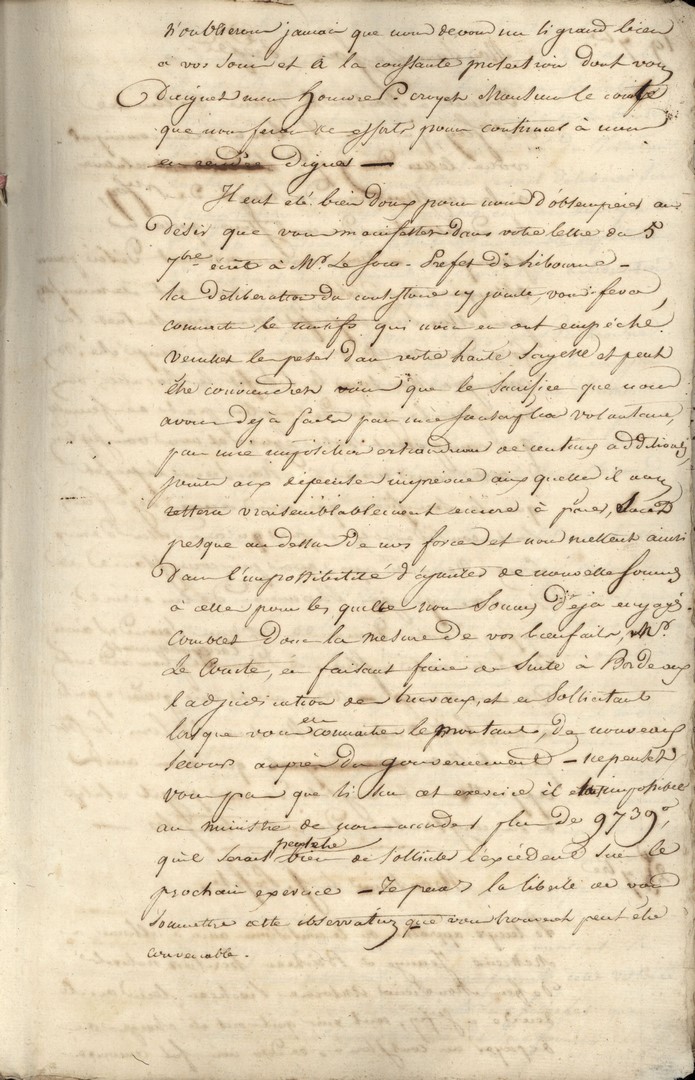 n'oublierons jamais que nous devons un si grand bien
à vos soins et à la constante protection dont vous
Daignez nous honorer. croyez Monsieur le comte
que nous ferons des efforts pour continuer à nous
en rendre dignes —
Il eut été bien doux pour nous d'obtemperer au
désir que vous manifestez dans votre lettre du 5
7bre écrite à Mr. Le Sous-Préfet de Libourne –
La déliberation du consistoire cy jointe, vous fera
connaitre les motifs qui nous en ont empêché.
veuillez les peser dans votre haute sagesse et peut
être conviendrez vous que les sacrifices que nous
avons déjà faits par une souscription volontaire,
par une imposition extraordinaire de centimes additionels,
joints aux dépenses imprévues aux quelles il nous
restera vraisemblablement encore à parer, sont
presque au dessus de nos forces et nous mettent ainsi
dans l'impossibilité d'ajouter de nouvelles sommes
à celles pour les quelles nous sommes déja engagés.
Comblez donc la mesure de vos bienfaits, Mr.
Le Comte, en faisant faire de suite à Bordeaux
l'adjudication des travaux, et en sollicitant
lorsque vous en connaitrez le montant, de nouveaux
secours auprès du gouvernement – ne pensez
vous pas que si sur cet exercice il est impossible
au ministre de nous accorder plus de 9739f,
qu'il serait peutetre bien de solliciter l'excédent sur le
prochain exercice – Je prends la liberté de vous
soumettre cette observation que vous trouverez peut être
convenable.